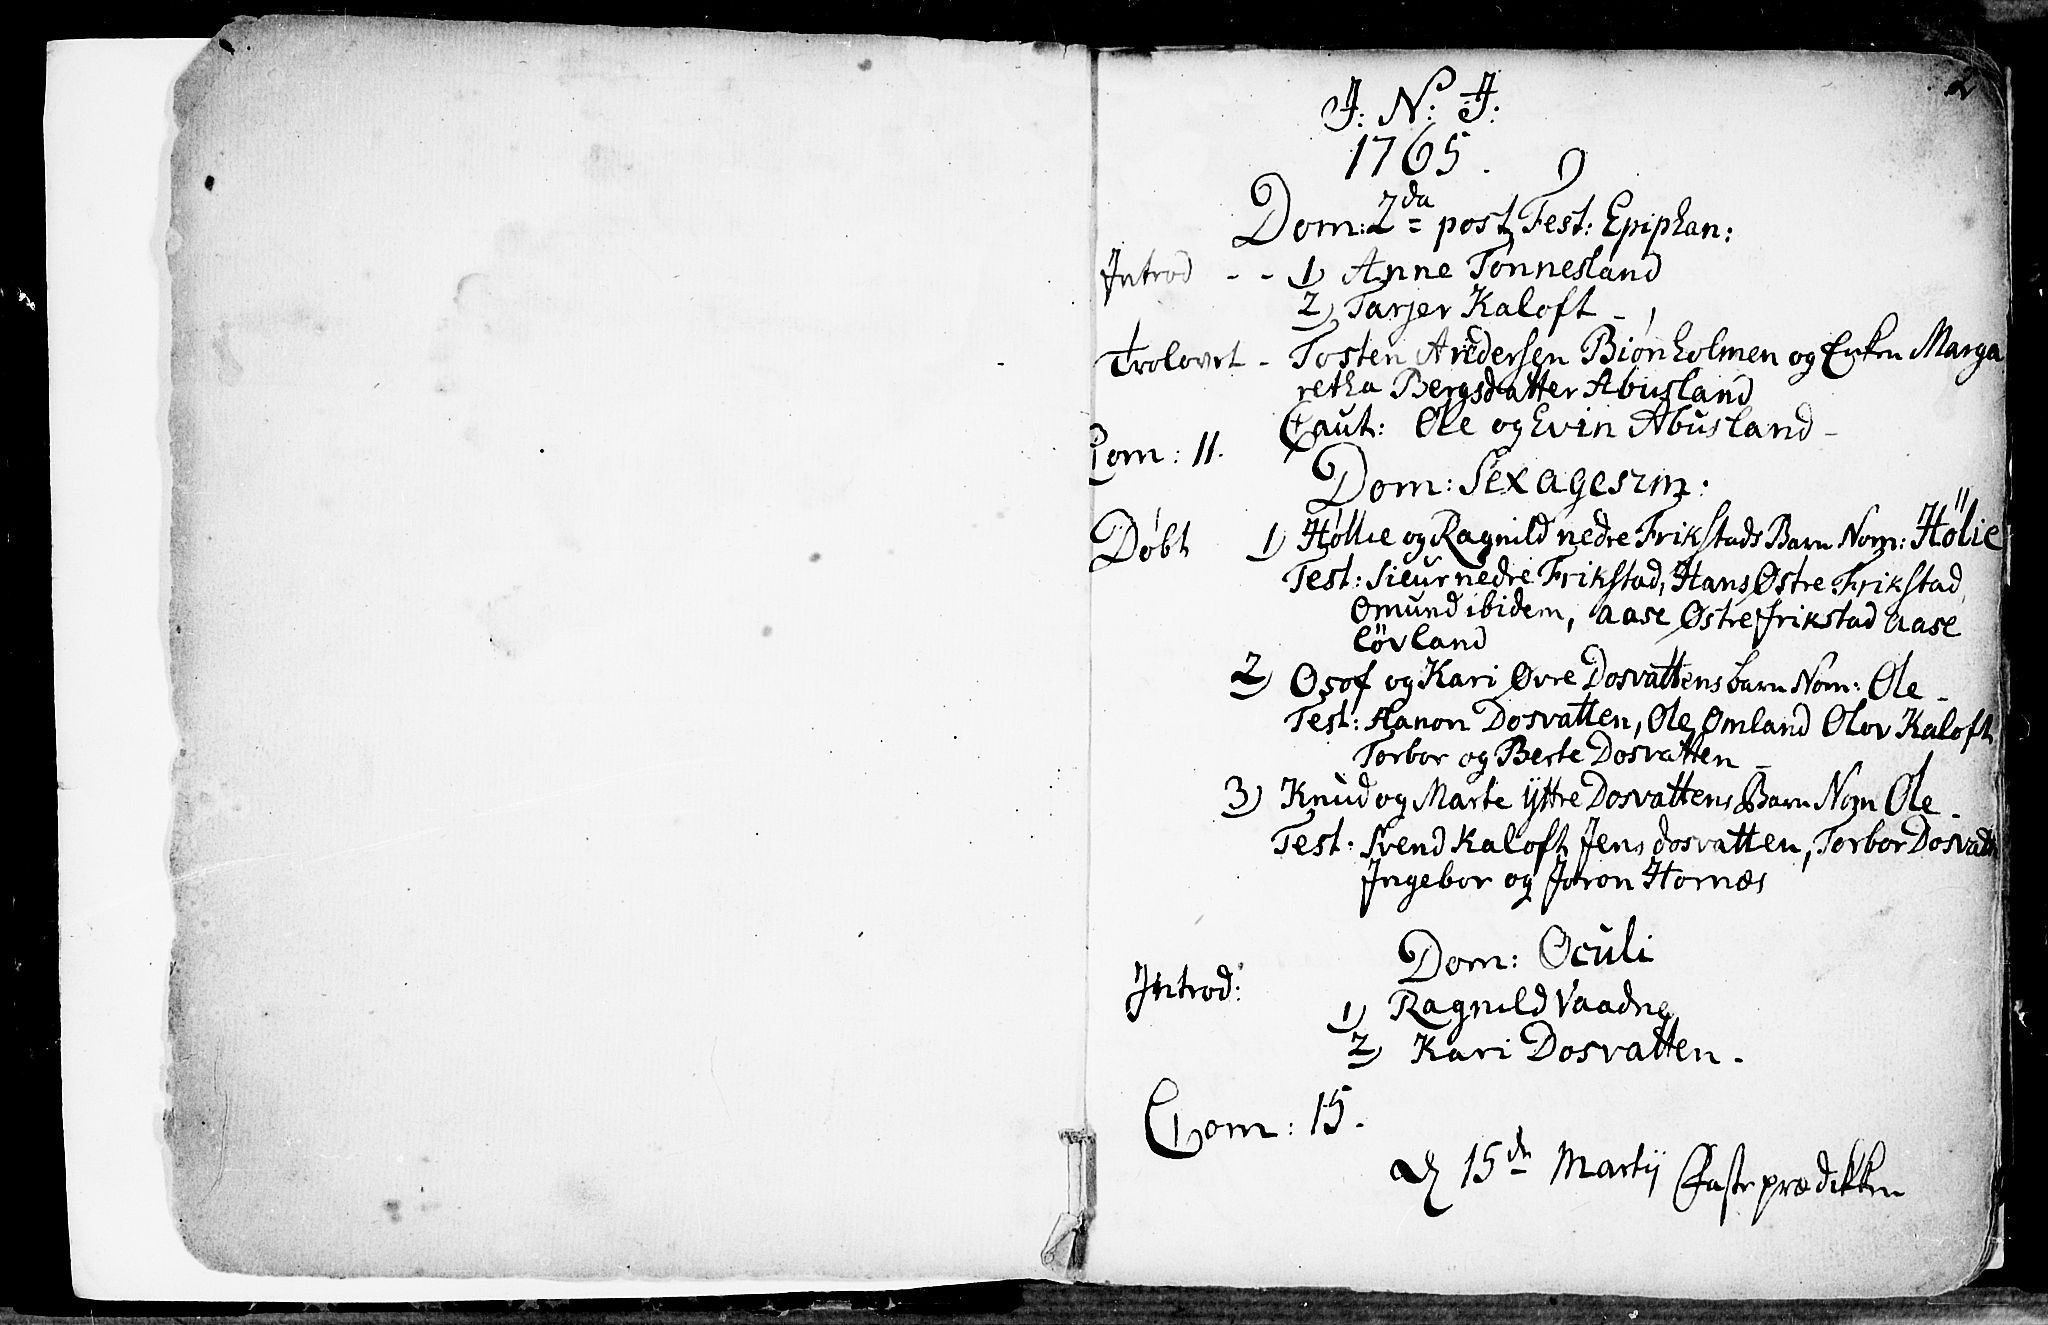 2
J: N: J:
1765.
Dom: 2da post Fest: Epiphan:
Introd - - 1) Anne Tonnesland
2) Tarjer Kaloft -
Trolovet - Tosten Andersen Biønholmen og Enken Marga
retha Bergsdatter Abusland
Caut: Ole og Evin Abusland -
Com: 11.
Dom: Sexagesim:
Døbt 1) Høllie og Ragnild nedre Frikstads Barn Nom: Hölie
Test: Siur nedre Frikstad, Hans Østre Frikstad,
Omund ibidem, Aase Østre frikstad Aase
lövland
2) Osof og Kari Øvre Dosvattens barn Nom: Ole -
Test: Hanon Dosvatten, Ole Omland Olov Kaloft
Torbor og Berte Dosvatten -
3) Knud og Marte yttre Dosvattens Barn Nom Ole -
Test: Svend Kaloft Jens dosvatten, Torbor Dosvatt
Ingebor og Joron Hornæs
Dom: Oculi
Introd:
1) Ragnild Vaadne
2) Kari Dosvatten -
Com: 15.
d 15de Martij Fasteprædikken